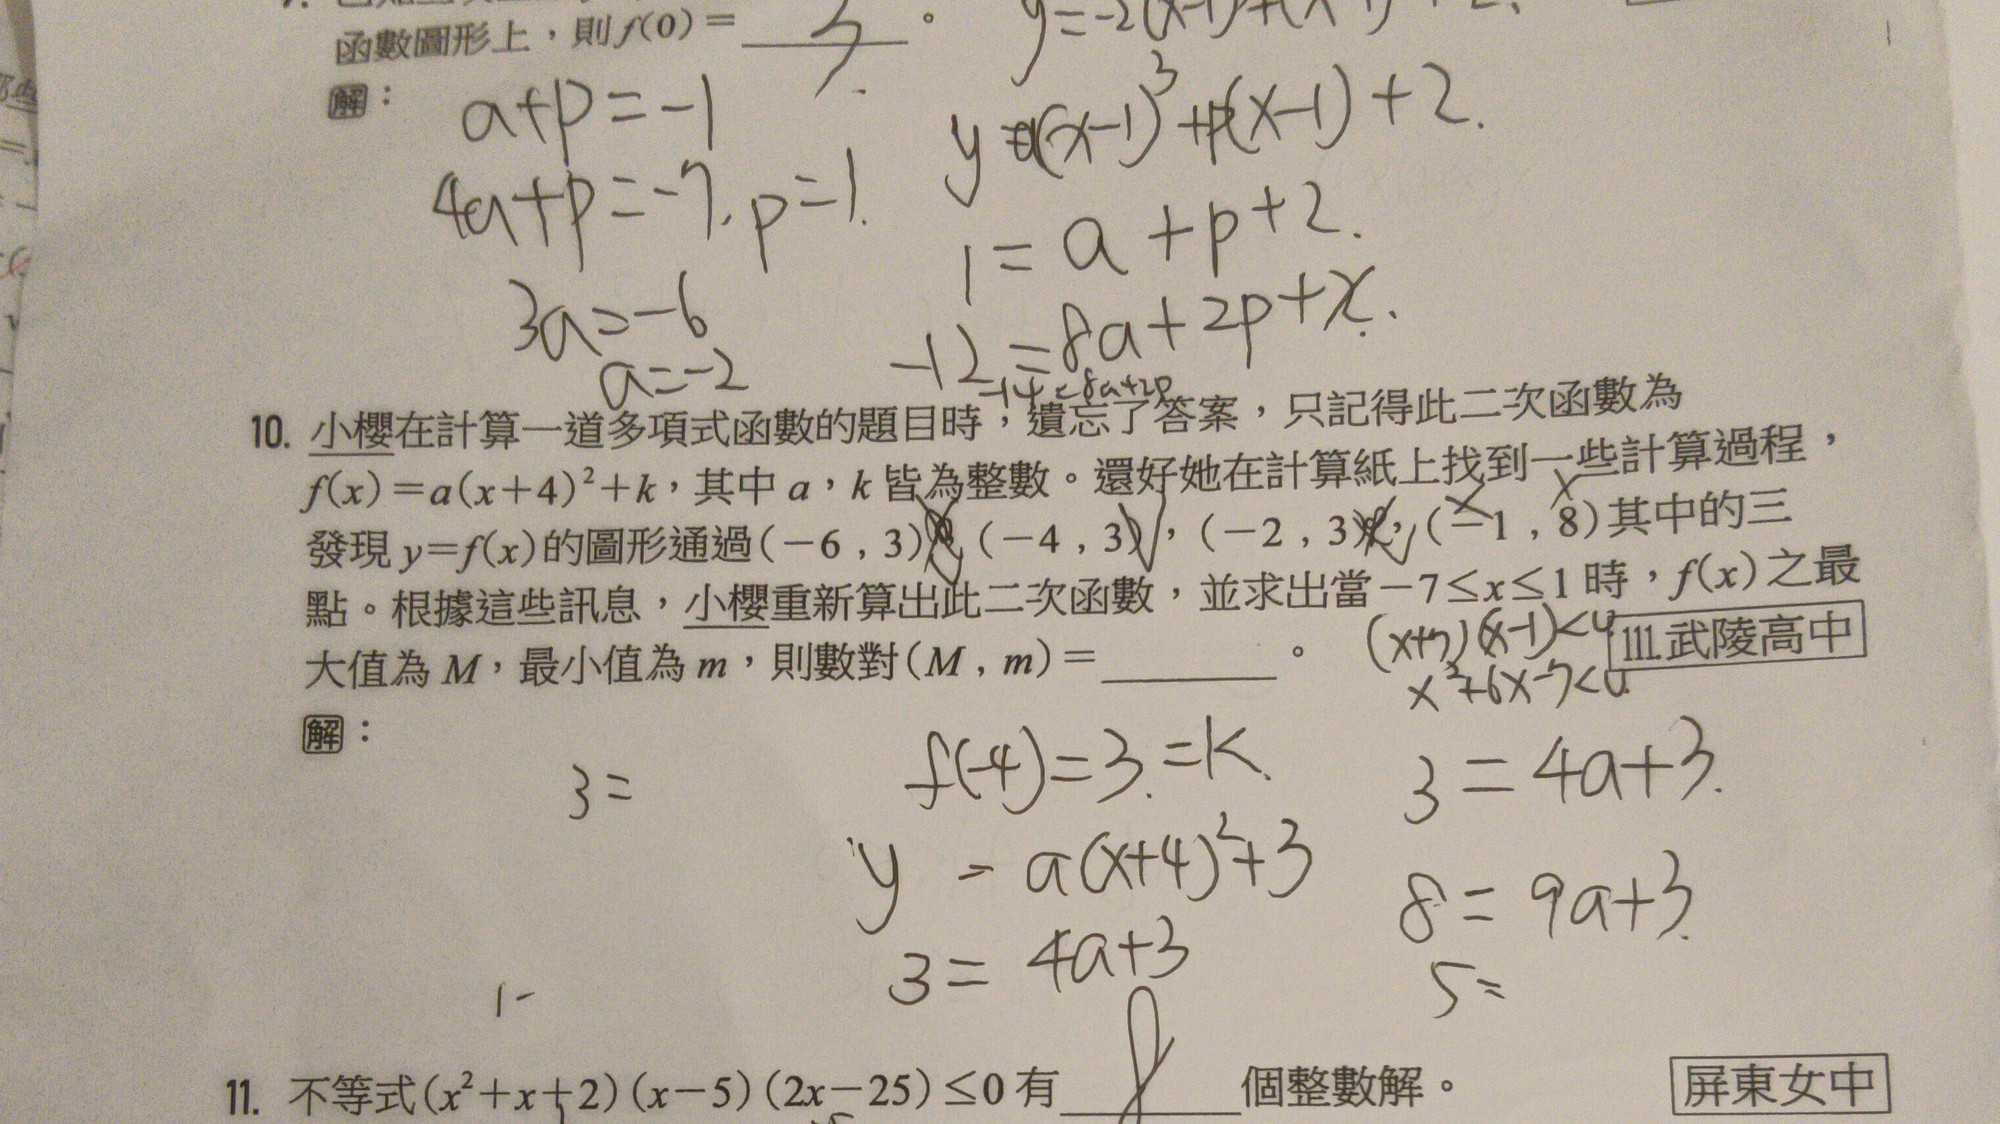 函數圖形上，則 f(0)=
解：
a+p=-1
y=a(x-1)³+p(x-1)+2.
4a+p=-7. p=1.
1=a+p+2.
3a=-6
-12=8a+2p+2.
a=-2
-14=8a+2p
10. 小櫻在計算一道多項式函數的題目時，遺忘了答案，只記得此二次函數為
f(x)=a(x+4)²+k，其中 a，k 皆為整數。還好她在計算紙上找到一些計算過程，
發現 y=f(x)的圖形通過(-6 , 3)，(-4 , 3)，(-2 , 3)，(-1 , 8)其中的三
點。根據這些訊息，小櫻重新算出此二次函數，並求出當 -7≤x≤1 時，f(x)之最
大值為 M，最小值為 m，則數對(M , m)=________。
(x+7)(x-1)<0
111.武陵高中
x²+6x-7<0
解：
3=
f(-4)=3.=k.
3=4a+3.
y=a(x+4)²+3
8=9a+3.
3=4a+3
5=
1-
11. 不等式(x²+x+2)(x-5)(2x-25)≤0 有 8 個整數解。
屏東女中